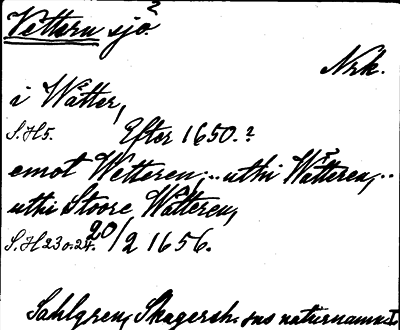 Vettern sjö?
Nrk.
i Wätter,
S.H5. Efter 1650.?
emot Wetteren;.. uthi Wätteren;..
uthi Stoore Wätteren,
S.H23o.24. 20/2 1656.
Sahlgren, Skagersh. sns naturnamn I.